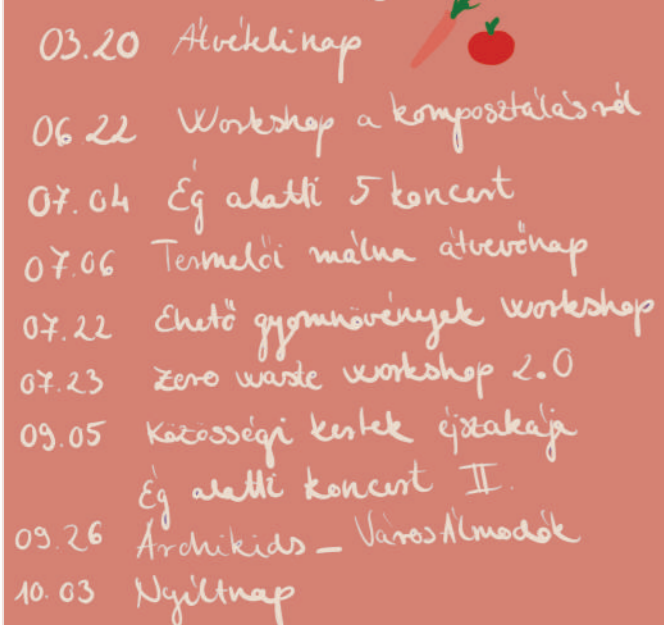 03.20 Átvételi nap
06.22 Workshop a komposztálásról
07.04 Ég alatti 5 koncert
07.06 Termelői málna átvevőnap
07.22 Ehető gyomnövények workshop
07.23 Zero waste workshop 2.0
09.05 Közösségi kertek éjszakája
Ég alatti koncert II.
09.26 Archikids_VárosÁlmodók
10.03 Nyíltnap